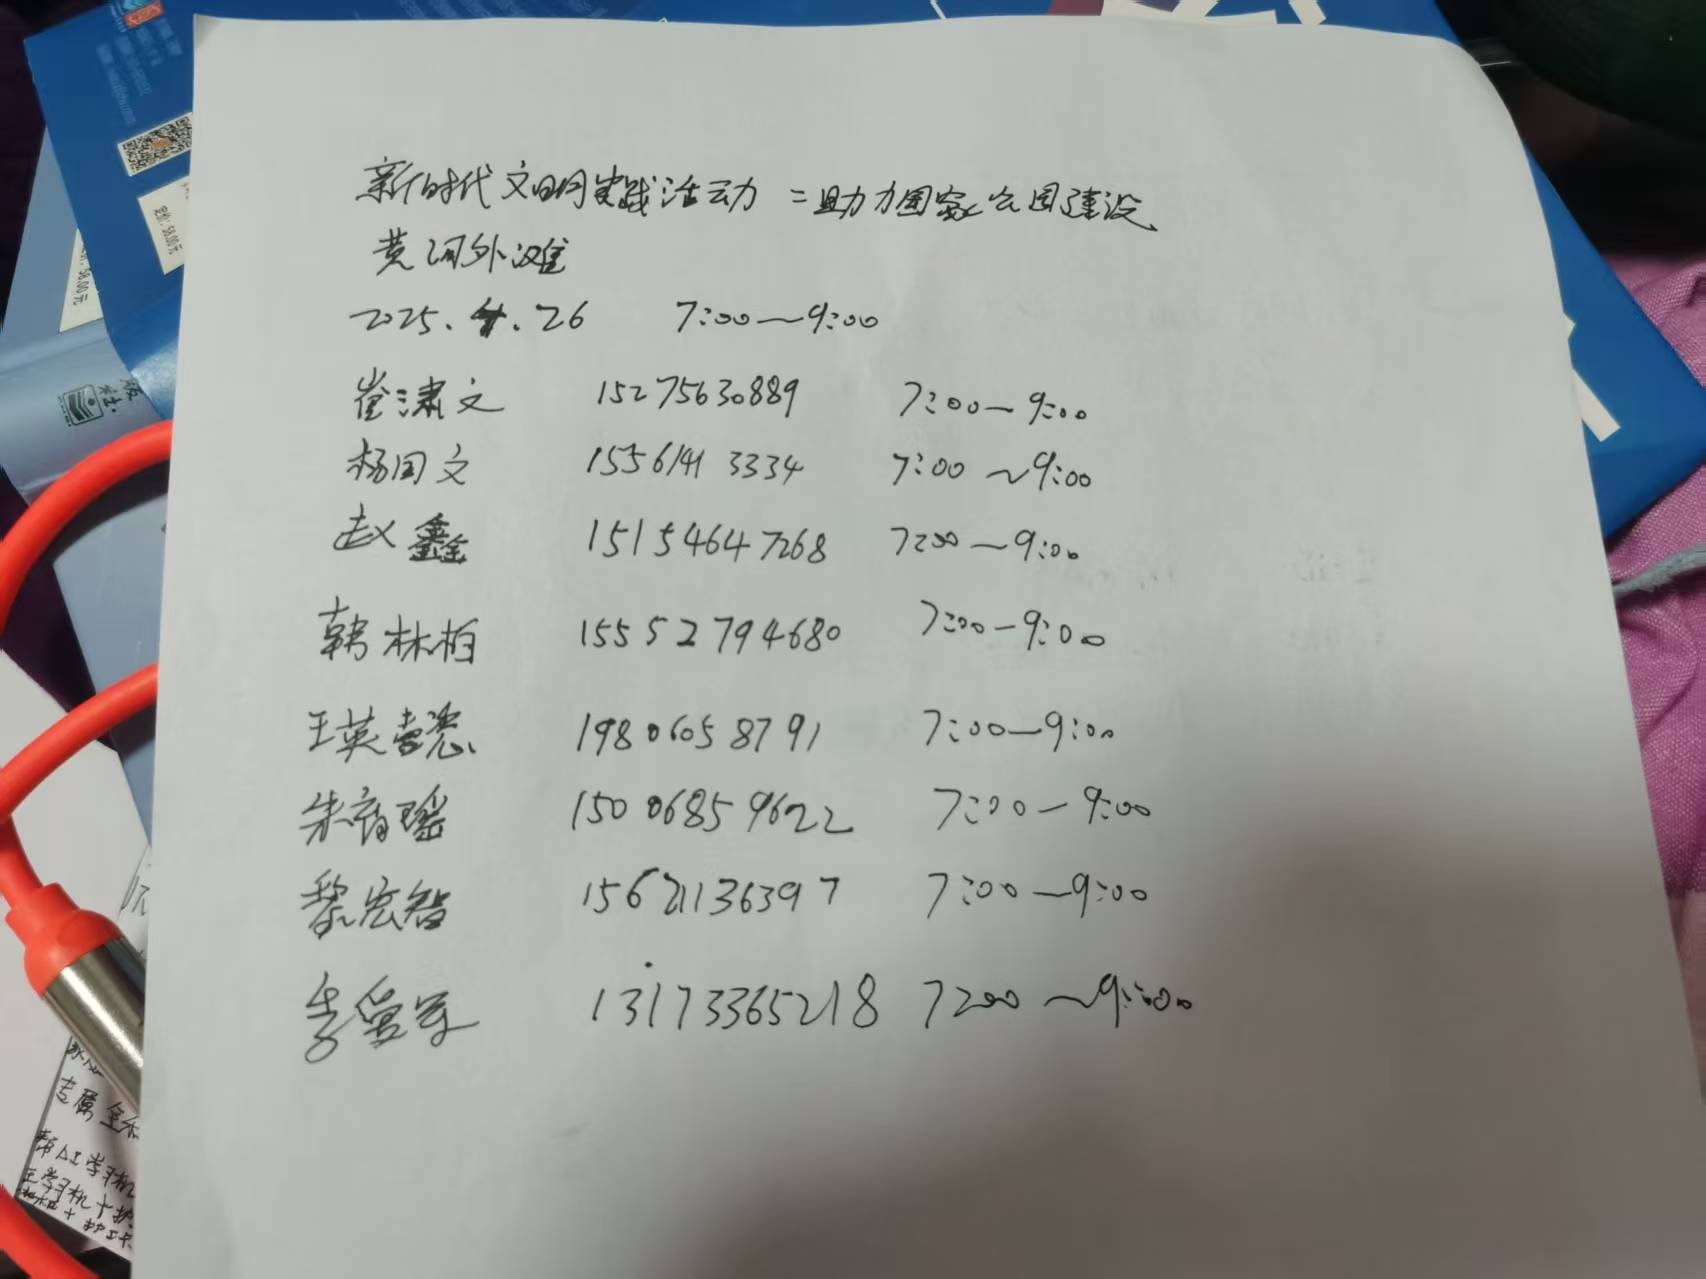 新时代文明实践活动 二助力国家公园建设
黄河外滩
2025.4.26 7:00—9:00
崔潇文 15275630889 7:00—9:00
杨国文 15561413334 7:00~9:00
赵鑫 15154647268 7:00—9:00
韩林柏 15552794680 7:00—9:00
王英 19806058791 7:00—9:00
朱 瑶 15006859622 7:00—9:00
黎宏智 15621136397 7:00—9:00
李 军 13173365218 7:00~9:00
定价:58.00元
58.00元
版社
专属
帮AI学习机